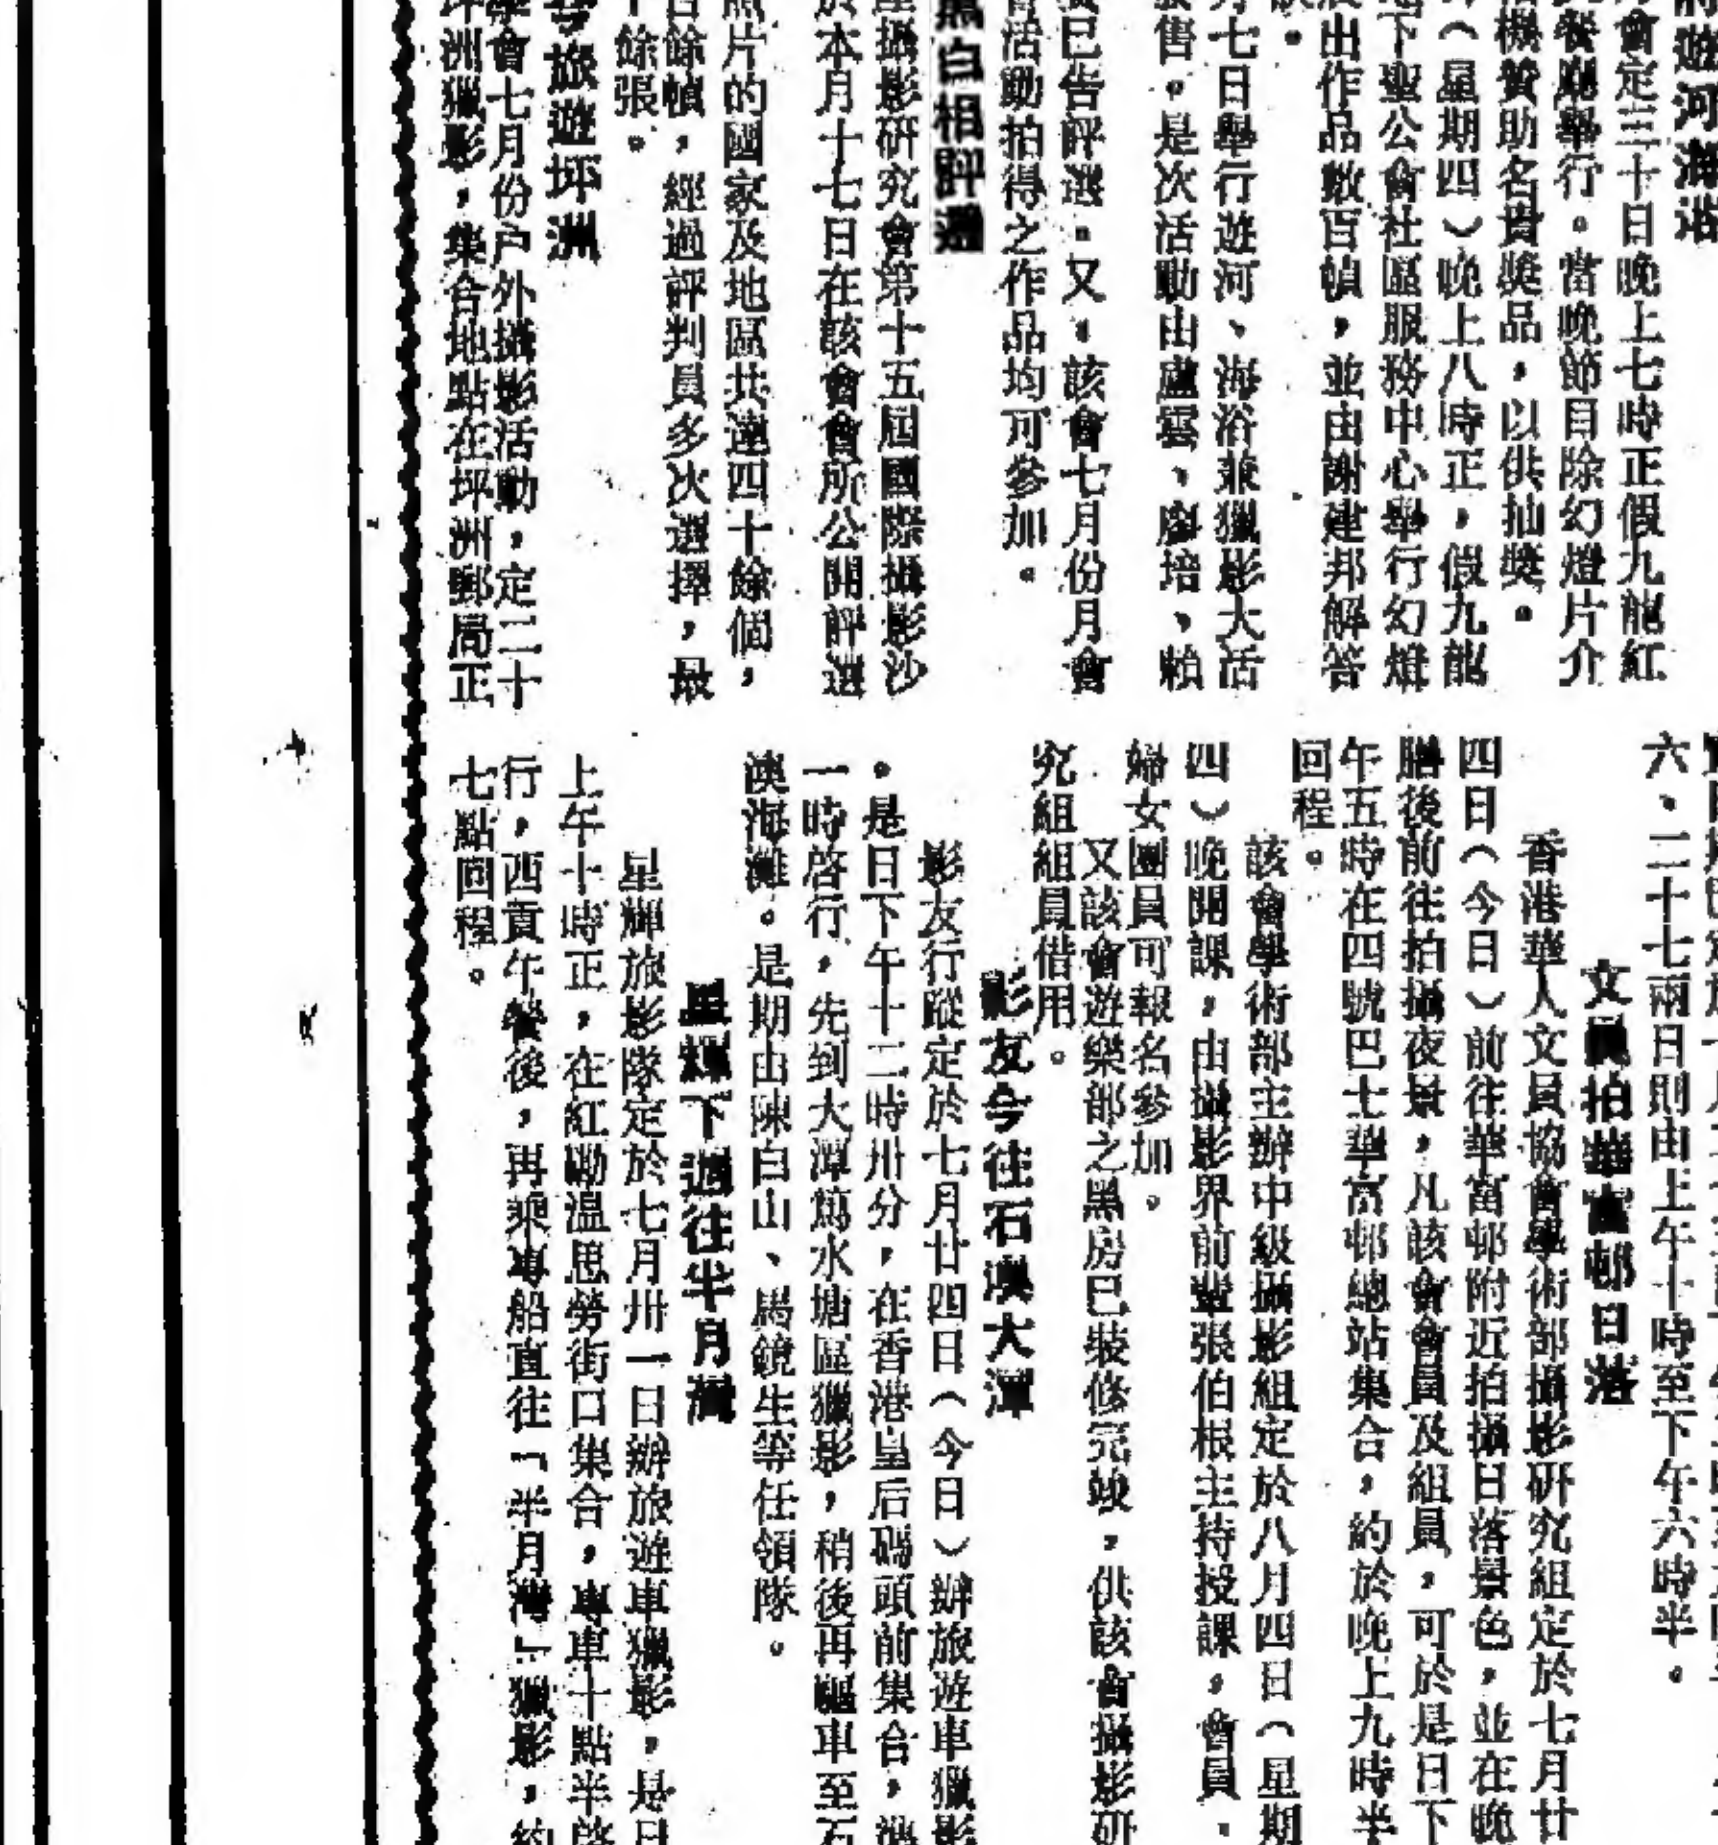 遊河海浴
會定三十日晚上七時正假九龍紅
餐廳舉行。當晚節目除幻燈片介
機贊助名貴獎品，以供抽獎。
（星期四）晚上八時正，假九龍
下聖公會社區服務中心舉行幻燈
出作品數百幀，並由謝建邦解答
七日舉行遊河、海浴兼獵影大活
售。是次活動由盧雲、廖培、賴
已告評選。又，該會七月份月會
活動拍得之作品均可參加。
黑白相評選
攝影研究會第十五屆國際攝影沙
於本月十七日在該會會所公開評選
照片的國家及地區共達四十餘個，
餘幀，經過評判員多次選擇，最
餘張。
旅遊坪洲
會七月份戶外攝影活動，定二十
坪洲獵影，集合地點在坪洲郵局正
六、二十七兩日則由上午十時至下午六時半。
文員拍華富邨日落
香港華人文員協會學術部攝影研究組定於七月廿
四日（今日）前往華富邨附近拍攝日落景色，並在晚
膳後前往拍攝夜景，凡該會會員及組員，可於是日下
午五時在四號巴士華富邨總站集合，約於晚上九時半
回程。
該會學術部主辦中級攝影組定於八月四日（星期
四）晚開課，由攝影界前輩張伯根主持授課，會員、
婦女團員可報名參加。
又該會遊樂部之黑房已裝修完竣，供該會攝影研
究組組員借用。
影友今往石澳大潭
影友行蹤定於七月廿四日（今日）辦旅遊車獵影
。是日下午十二時卅分，在香港皇后碼頭前集合，準
一時啓行，先到大潭篤水塘區獵影，稍後再驅車至石
澳海灘。是期由陳白山、馬鏡生等任領隊。
星輝下週往半月灣
星輝旅影隊定於七月卅一日辦旅遊車獵影，是日
上午十時正，在紅磡温思勞街口集合，專車十點半啓
行，西貢午餐後，再乘專船直往「半月灣」獵影，約
七點回程。